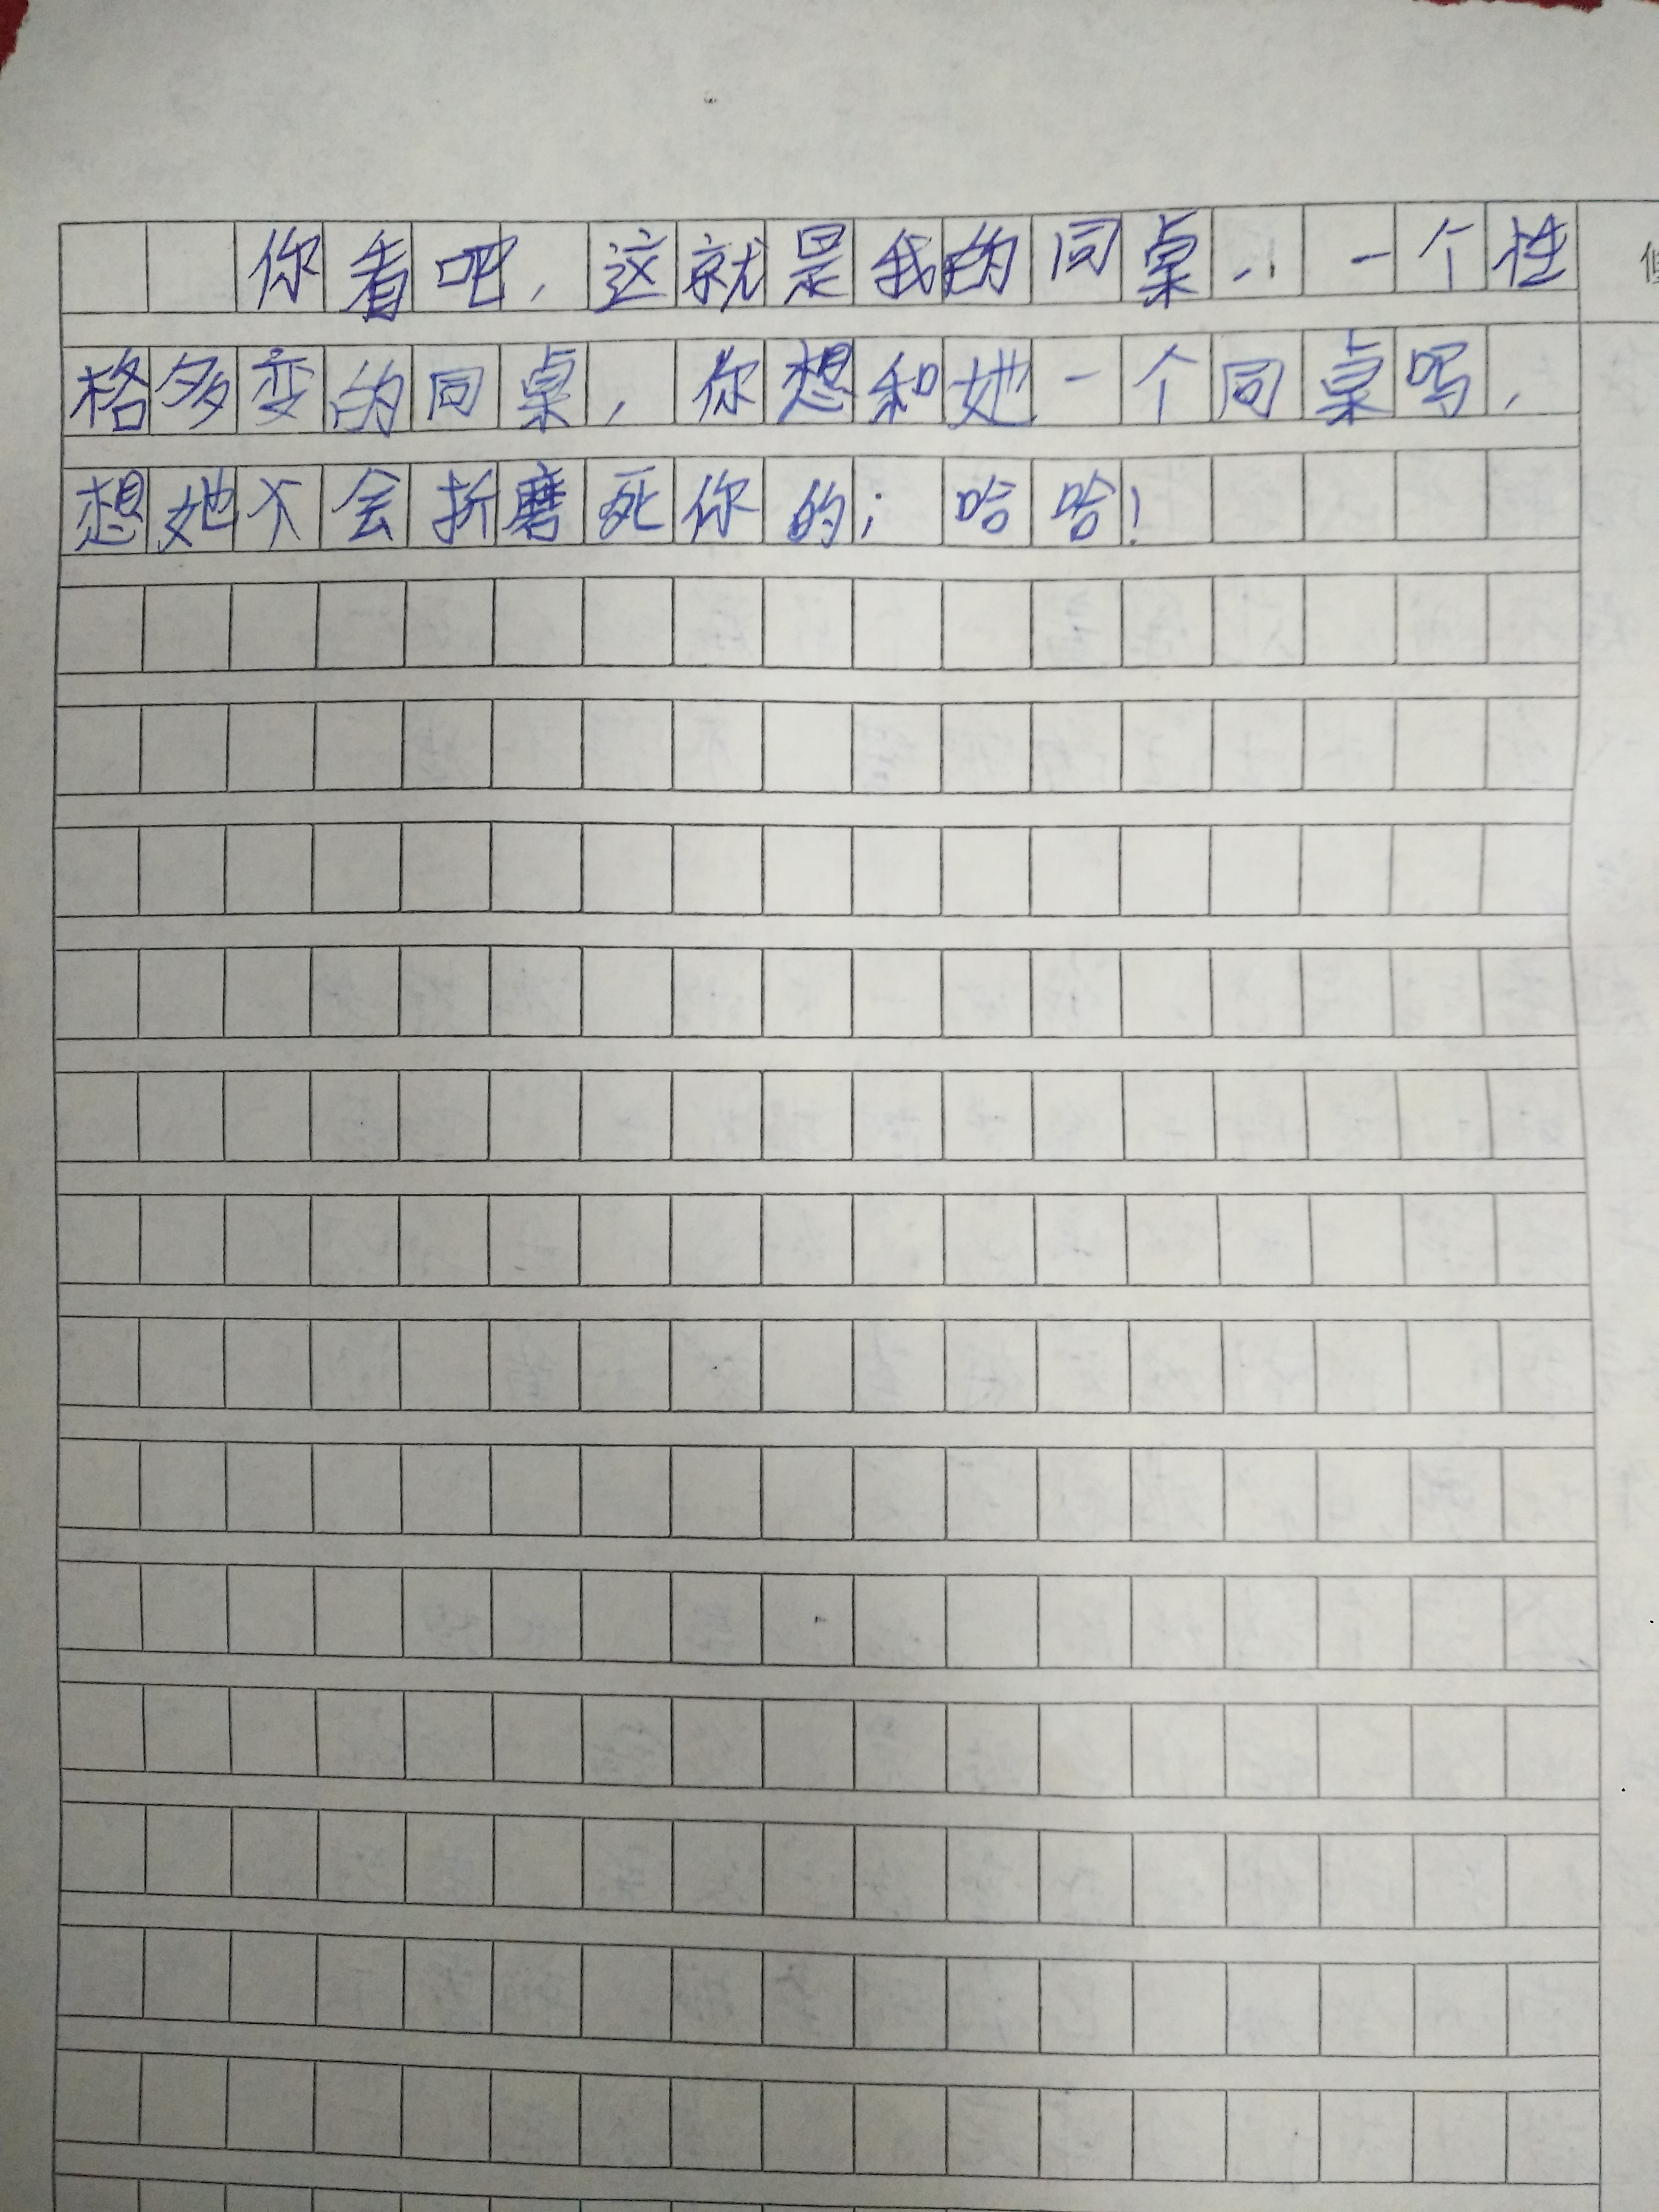 你看吧，这就是我的同桌，一个性
格多变的同桌，你想和她一个同桌吗，
想她不会折磨死你的；哈哈！